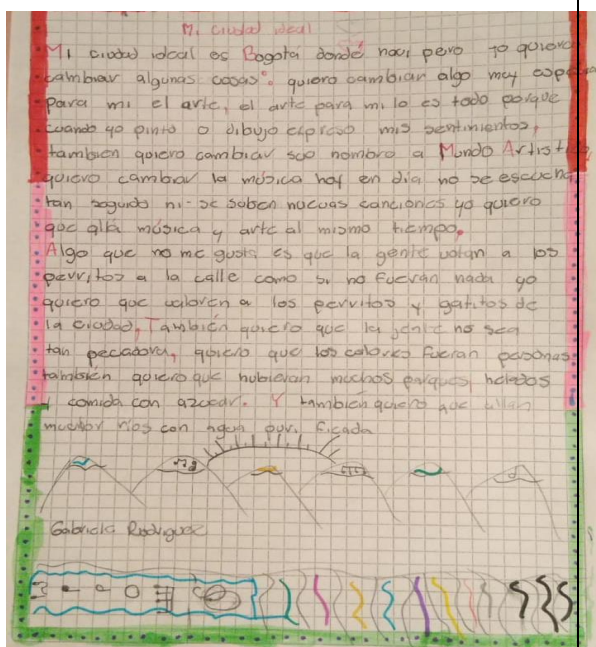 Mi ciudad ideal
Mi ciudad ideal es Bogota donde naci pero yo quiero
cambiar algunas cosas: quiero cambiar algo muy
para mi el arte, el arte para mi lo es todo porque
cuando yo pinto o dibujo expreso mis sentimientos,
tambien quiero cambiar suo nombre a Mundo Artistico,
quiero cambiar la música hoy en dia no se escucha
tan seguido ni se suben nuevas canciones yo quiero
que alla música y arte al mismo tiempo.
Algo que no me gusta es que la gente votan a los
perritos a la calle como si no fueran nada yo
quiero que valoren a los perritos y gatitos de
la ciudad, También quiero que la jente no sea
tan pecadora, quiero que los colores fueran personas
también quiero que hubieran muchos parques, helados
y comida con azucar. Y tambien quiero que allan
muchos rios con agua purificada
Gabriela Rodriguez